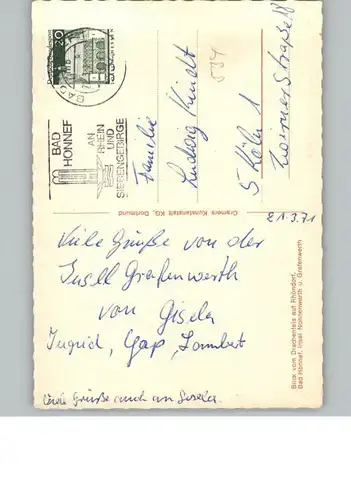 20
BAD
HONNEF
AN
RHEIN
UND
SIEBENGEBIRGE
Familie
Ludwig Kindt
5 Köln 1
Zwirnerstraße 18
534
Cramers Kunstanstalt KG, Dortmund
21.3.71
Viele Grüße von der
Insel Grafenwerth
von Gisela
Ingrid,
Blick vom Drachenfels auf Rhöndorf,
Bad Honnef, Insel Nonnenwerth u. Grafenwerth
Viele Grüße auch an Gisela